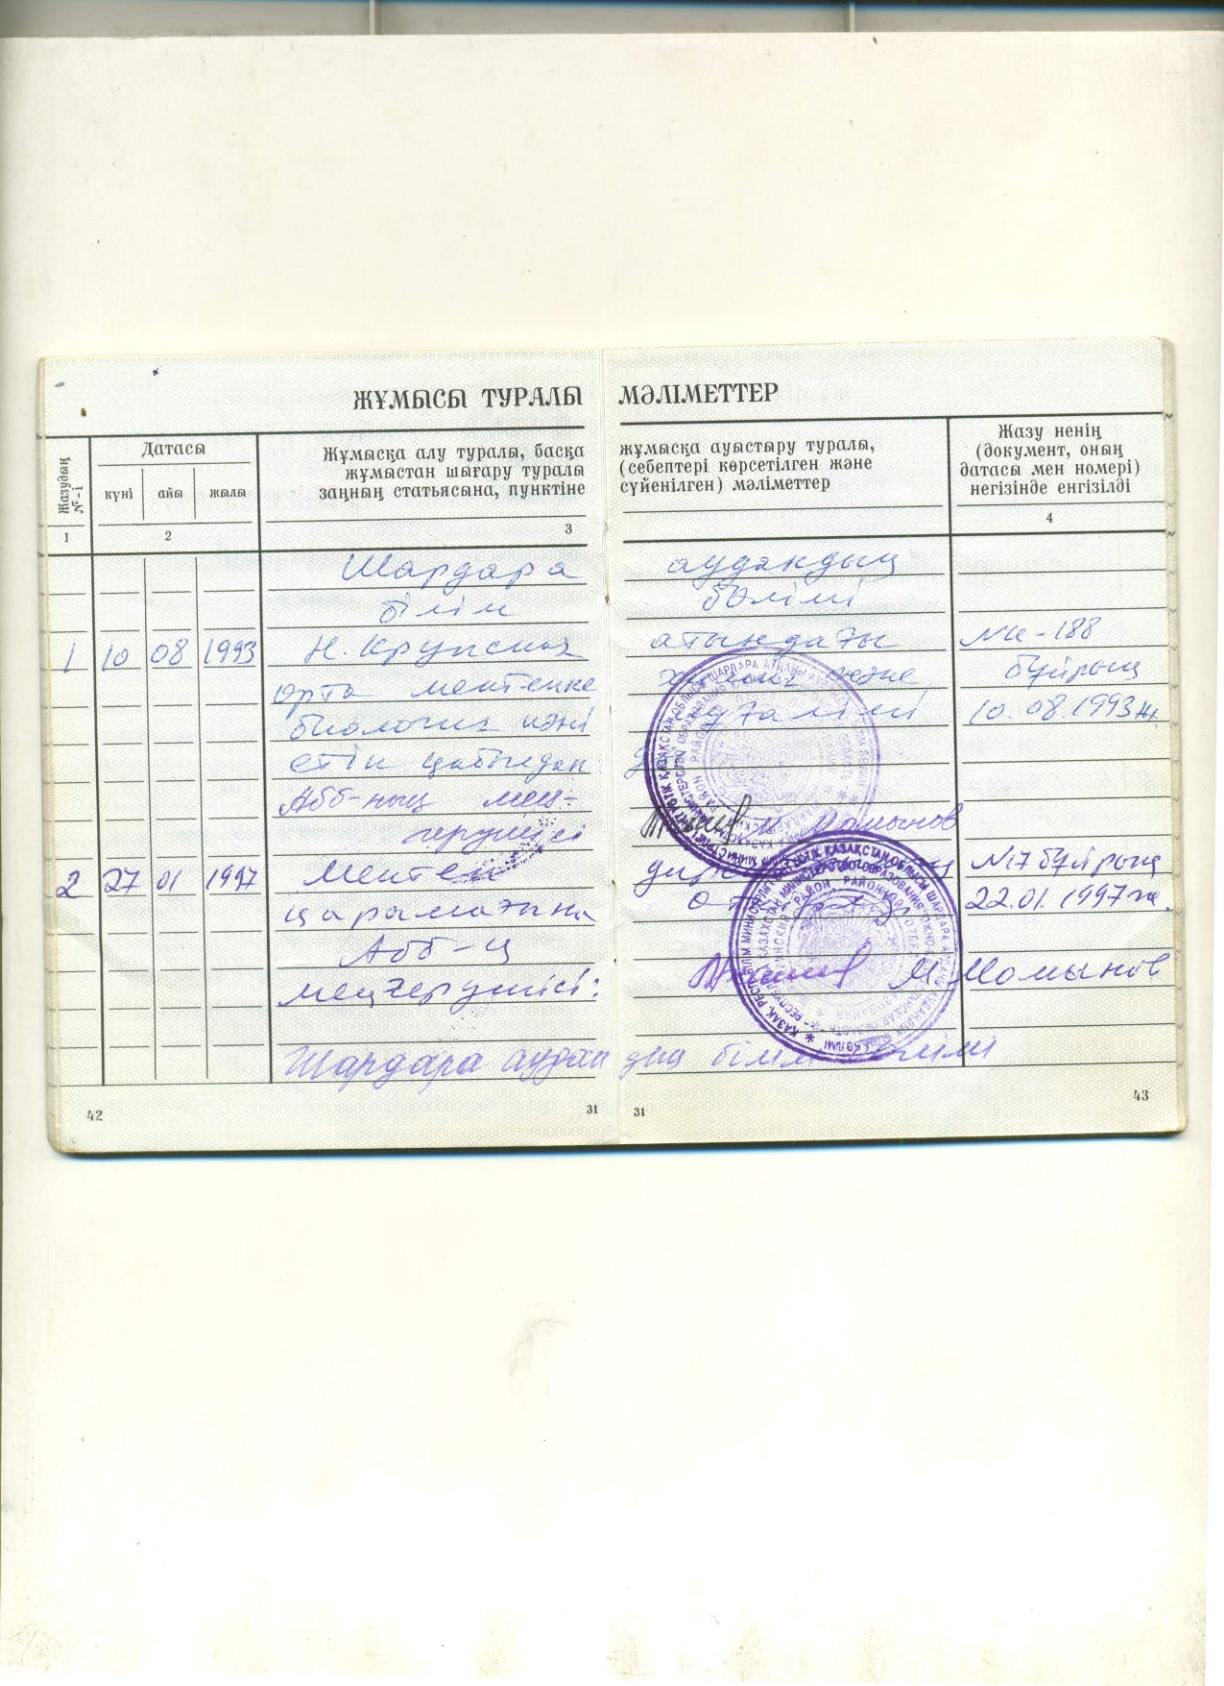 ЖҰМЫСЫ ТУРАЛЫ МӘЛІМЕТТЕР
Жазудың №-і
Датасы
күні айы жылы
Жұмысқа алу туралы, басқа
жұмыстан шығару туралы
заңның статьясына, пунктіне
жұмысқа ауыстыру туралы,
(себептері көрсетілген және
сүйенілген) мәліметтер
Жазу ненің
(документ, оның
датасы мен номері)
негізінде енгізілді
1 2 3 4
Шардара аудандық
білім бөлімі
1 10 08 1993 Н. Крупская атындағы №к-188
орта мектепке және бұйрық
биология пәні мұғалімі 10.08.1993ж.
етіп қабылдан
Абб-ның мең-
герушісі М Момынов
2 27 01 1997 Мектеп №17 бұйрық
қарамағына 22.01.1997ж.
Абб-ң
меңгерушісі: М. Момынов
Шардара аудандық білім бөлімі
42 31 31 43